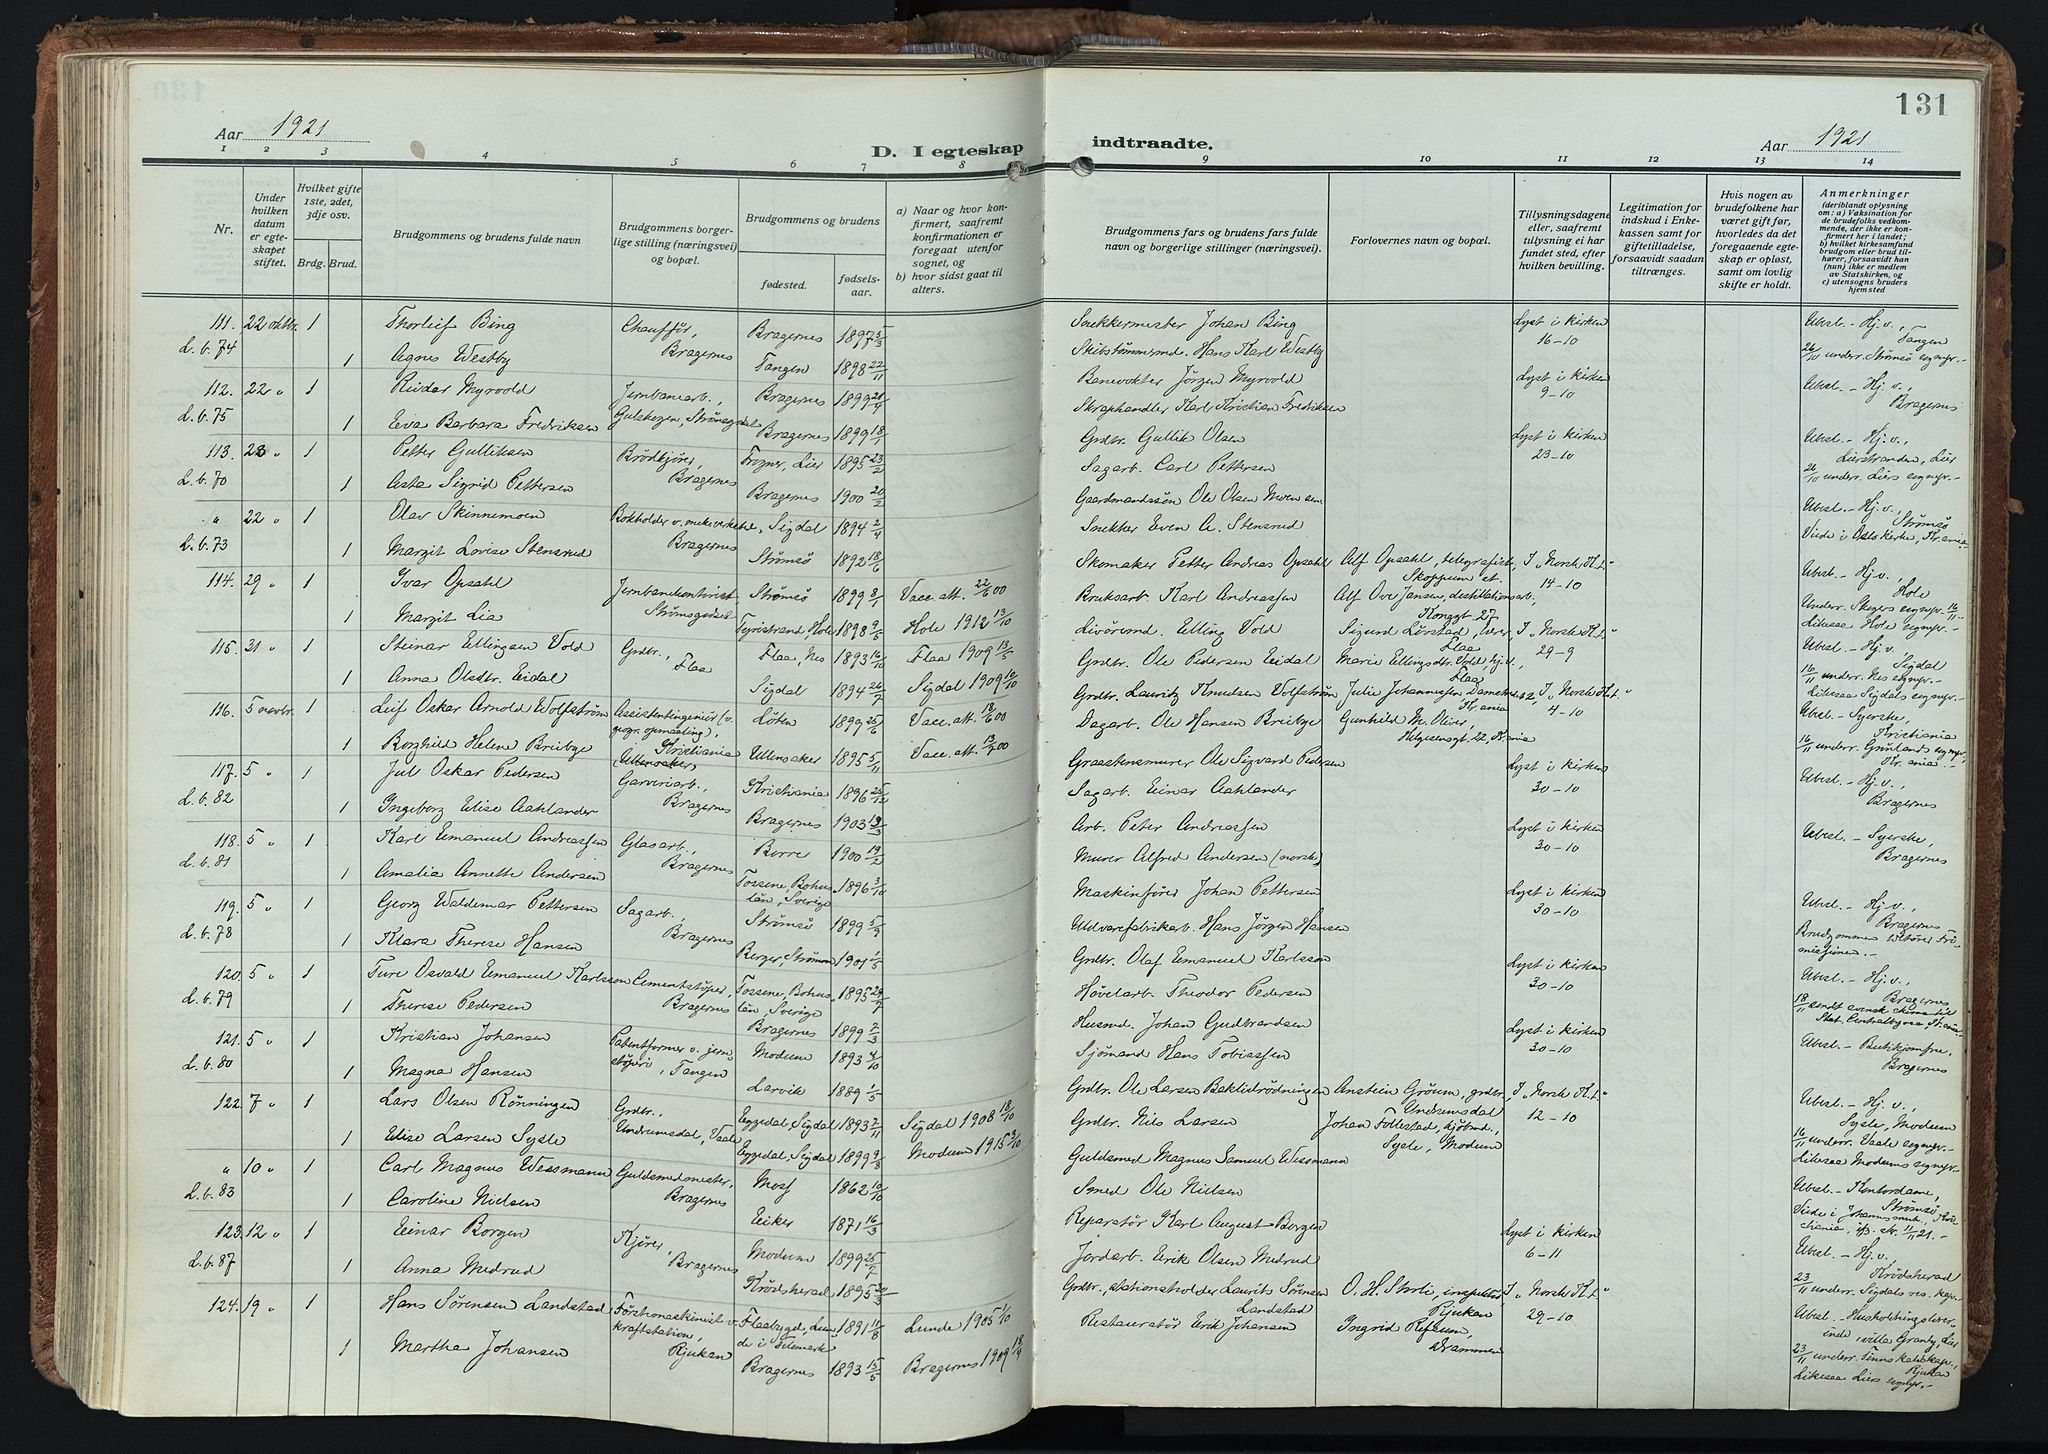 131
Aar 1921
D. I egteskap indtraadte.
Aar 1921
1 2 3 4 5 6 7 8 9 10 11 12 13 14
Nr.
Under hvilken datum er egteskapet stiftet.
Hvilket gifte 1ste, 2det, 3dje osv.
Brdg. Brud.
Brudgommens og brudens fulde navn
Brudgommens borgerlige stilling (næringsvei) og bopæl.
Brudgommens og brudens
fødested. fødselsaar.
a) Naar og hvor konfirmert, saafremt konfirmationen er foregaaet utenfor sognet, og
b) hvor sidst gaat til alters.
Brudgommens fars og brudens fars fulde navn og borgerlige stillinger (næringsvei).
Forlovernes navn og bopæl.
Tillysningsdagene eller, saafremt tillysning ei har fundet sted, efter hvilken bevilling.
Legitimation for indskud i Enkekassen samt for giftetilladelse, forsaavidt saadan tiltrænges.
Hvis nogen av brudefolkene har været gift før, hvorledes da det foregaaende egteskap er opløst, samt om lovlig skifte er holdt.
Anmerkninger (deriblandt oplysning om: a) Vaksination for de brudefolks vedkommende, der ikke er konfirmert her i landet; b) hvilket kirkesamfund brudgom eller brud tilhører, forsaavidt han (hun) ikke er medlem av Statskirken, og c) utensogns bruders hjemsted
111. 22 oktbr. 1 Thorleif Bing Chauffør, Bragernes 1897 5/3 Snekkermester Johan Bing Lyst i kirken 16-10 Ubesl. - Hj.v., Tangen
L.b. 74 1 Agnes Westby Bragernes Tangen 1898 22/11 Skibstømmermd. Hans Karl Westby 26/10 underr. Strømsø sognepr.-
112. 22 " 1 Reidar Myrvold Jernbanearb., Bragernes 1899 20/4 Banevokter Jørgen Myrvold Lyst i kirken 9-10 Ubesl. - Hj.v., Bragernes
L.b. 75 1 Eva Barbara Fredriksen Gulskogen, Strømsgodset Bragernes 1899 18/1 Skraphandler Karl Kristian Fredriksen
113. 23 " 1 Petter Gulliksen Brødkjører, Frogner, Lier 1895 23/2 Grdbr. Gullik Olsen Lyst i kirken 23-10 Ubesl. - Hj.v., Lierstranden, Lier
L.b. 70 1 Asta Sigrid Pettersen Bragernes Bragernes 1900 20/2 Sagarb. Carl Pettersen 26/10 underr. Liers sognepr.-
" 22 " 1 Olav Skinnemoen Bokholder v. mek.verksted, Sigdal 1894 2/4 Gaardmandssøn Ole Olsen Moen sen. Ubesl. - Hj.v., Strømsø
L.b. 73 1 Margit Lovise Stensrud Bragernes Strømsø 1892 18/6 Snekker Even A. Stensrud Viede i Oslo kirke, Kr.ania.
114. 29 " 1 Ivar Opsahl Jernbanekontorist Strømsø 1899 8/1 Vacc. att. 22/6 00 Skomaker Petter Andreas Opsahl Alf Opsahl, telegrafist, Skoppum st. I "Norsk K.t." 14-10 Ubesl. - Hj.v., Hole
1 Margit Lia Strømsgodset Tyristrand, Hole 1898 9/5 Hole 1912 13/10 Bruksarb. Karl Andreassen Alf Ove Jansen, destillationsarb., Konggt. 27 Underr. Skogers sognepr. 16/11 Likesaa Hole sognepr.-
115. 21 " 1 Steinar Ellingsen Vold Grdbr., Flaa, Nes 1893 16/10 Flaa 1909 13/5 Livøremd. Elling Vold Sigurd Lørstad, lærer, Flaa I "Norsk K.t." 29-9 Ubesl. - Hj.v. Sigdal
1 Anna Olsdtr. Eidal Flaa Sigdal 1894 26/7 Sigdal 1909 10/10 Grdbr. Ole Pedersen Eidal Marie Ellingsdtr. Vold, hj.v., Flaa 16/11 underr. Nes sognepr.- Likesaa Sigdals sognepr.-
116. 5 novbr. 1 Leif Oskar Arnold Wolfstrøm Assistentingeniør (v. geogr. opmaaling), Løten 1899 25/6 Vacc. att. 18/6 00 Grdbr. Lauritz Knudsen Wolfstrøm Julie Johannessen, Kr.ania I "Norsk K.t." 4-10 Ubesl. - Syerske, Kristiania
1 Borghild Helene Breibye Kristiania (Ullensaker) Ullensaker 1895 5/11 Vacc. att. 13/7 00 Dagarb. Ole Hansen Breibye Gunhild M. Oliver, Helgesensgt. 22, Kr.ania 16/11 underr. Grønlands sognepr., Kr.ania.-
117. 5 " 1 Jul Oskar Pedersen Garveriarb., Kristiania 1896 25/12 Graastensmurer Ole Sigvard Pedersen Lyst i kirken 30-10 Ubesl. - Hj.v., Bragernes
L.b. 82 1 Ingeborg Elise Aahlander Bragernes Bragernes 1903 19/3 Sagarb. Einar Aahlander
118. 5 " 1 Karl Emanuel Andreassen Glasarb., Borre 1900 19/2 Arb. Peter Andreassen Lyst i kirken 30-10 Ubesl. - Syerske, Bragernes
L.b. 81 1 Amalia Annette Andersen Bragernes Tossene, Bohuslän, Sverige 1896 3/10 Murer Alfred Andersen (norsk)
119. 5 " 1 Georg Waldemar Pettersen Sagarb., Strømsø 1899 5/9 Maskinfører Johan Pettersen Lyst i kirken 30-10 Ubesl. - Hj.v., Bragernes
L.b. 78 1 Klara Therese Hansen Bragernes Berger, Strømm 1901 1/5 Uldvarefabrikarb. Hans Jørgen Hansen Brudgommen tilhører Frimissionen.-
120. 5 " 1 Ture Osvald Emanuel Karlsson Cementstøper, Tossene, Bohuslän, Sverige 1895 24/7 Grdbr. Olaf Emanuel Karlsson Lyst i kirken 30-10 Ubesl. - Hj.v., Bragernes
L.b. 79 1 Therese Pedersen Bragernes Bragernes 1899 2/3 Høvelarb. Theodor Pedersen 18/11 sendt svensk skema til Stat. Centralbyraa Kr.ania
121. 5 " 1 Kristian Johansen Patentformer v. jernstøperi, Tangen Modum 1893 4/10 Husmd. Johan Gudbrandsen Lyst i kirken 30-10 Ubesl. - Butikjomfru, Bragernes
L.b. 80 1 Magna Hansen Larvik 1889 1/5 Sjømand Hans Tobiassen
122. 7 " 1 Lars Olsen Rønningen Grdbr., Eggedal, Sigdal 1893 2/11 Sigdal 1908 18/10 Grdbr. Ole Larsen Baklidrødningen Anstein Grøum, grdbr., Undrumsdal I "Norsk K.t." 12-10 Ubesl. - Hj.v., Sysle, Modum
1 Elise Larsen Sysle Undrumsdal, Vaale Eggedal, Sigdal 1899 9/8 Modum 1915 3/10 Grdbr. Nils Larsen Johan Follestad, kjøbmd., Sysle, Modum 16/11 underr. Vaale sognepr.- Likesaa Modums sognepr.-
" 10 " 1 Carl Magnus Wessmann Guldsmedmester, Moss 1862 10/10 Guldsmed Magnus Samuel Wessmann Ubesl. - Kontordame, Strømsø
L.b. 83 1 Caroline Nielsen Bragernes Eiker 1871 16/3 Smed Ole Nielsen
123. 12 " 1 Einar Borgen Kjører, Modum 1899 25/7 Reparatør Karl August Borgen Lyst i kirken 6-11 Ubesl. - Hj.v., Krødsherad
L.b. 87 1 Anna Medrud Bragernes Krødsherad 1895 20/3 Jordarb. Erik Olsen Medrud 23/11 underr. Sigdals res. kap.-
124. 19 " 1 Hans Sørensen Landstad Førstemaskinist v. kraftstation, Flaabygd, Lunde i Telemark 1891 11/8 Lunde 1905 1/10 Grdbr., stationsholder Laurits Sørensen Landstad O. H. Storli, inspektør, Rjukan I "Norsk K.t." 29-10 Ubesl. - Husholdningslærerinde, villa Granly, Lier
1 Martha Johansen Rjukan Bragernes 1893 15/5 Bragernes 1909 18/9 Restauratør Erik Johansen Ingrid Refsum, Drammen 23/11 underr. Tinns kaldskap., Rjukan Likesaa Liers sognepr.-